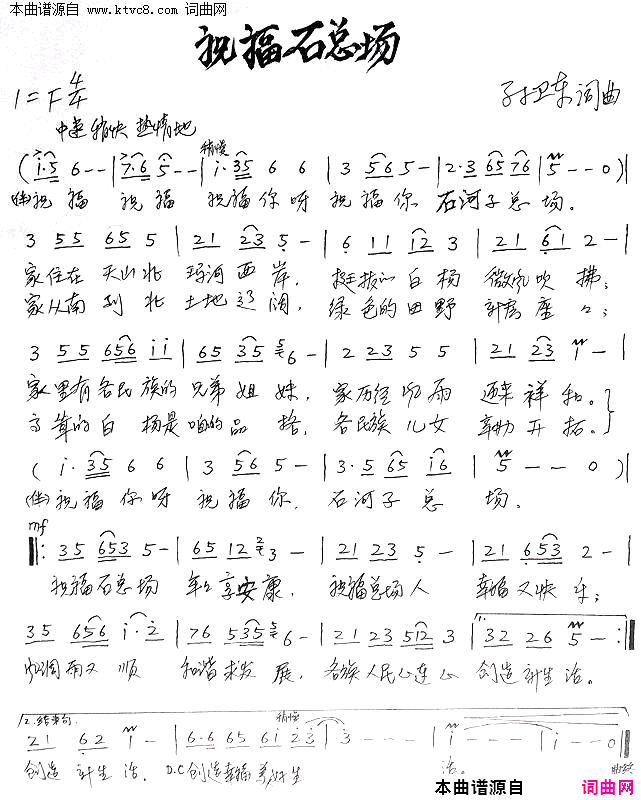 本曲谱源自
www.ktvc8.com 词曲网
祝福石总场
1=F 4/4
孙卫东 词曲
中速 稍快 热情地
稍慢
(i·5 6 - - | 7·6 5 - - | i·35 6 6 | 3 56 5 - | 2·3 65 76 | 5 - - 0)
(伴)祝福 祝福 祝福你呀 祝福你 石河子总场。
3 55 65 5 | 21 23 5 - | 6 11 12 3 | 21 61 2 - |
家住在天山北 玛河西岸, 挺拔的白杨 微风吹拂;
家从南到北 土地辽阔, 绿色的田野 新房座々;
3 55 656 ii | 65 35 6 - | 2 23 5 5 | 21 23 1 - |
家里有各民族的兄弟姐妹, 家历经风雨 迎来祥和。
高耸的白杨是咱的品格, 各民族儿女 开拓。
(i·35 6 6 | 3 56 5 - | 3·5 65 i6 | 5 - - 0)
(伴)祝福你呀 祝福你, 石河子总场。
mf
35 653 5 - | 65 12 3 - | 21 23 5 - | 21 653 2 - |
祝福石总场 年々享安康, 祝福总场人 幸福又快乐;
35 656 i·2 | 76 535 6 - | 21 23 512 3 | 1. 32 26 5 - :|
风调雨又顺 和谐求发展, 各族人民心连心 创造新生活。
2.结束句. 稍慢
21 62 1 - | 6·6 65 6i 23 | 3 - - - | i - - - | i - - 0 ||
创造新生活. D.C 创造幸福美好生 活。
本曲谱源自
词曲网